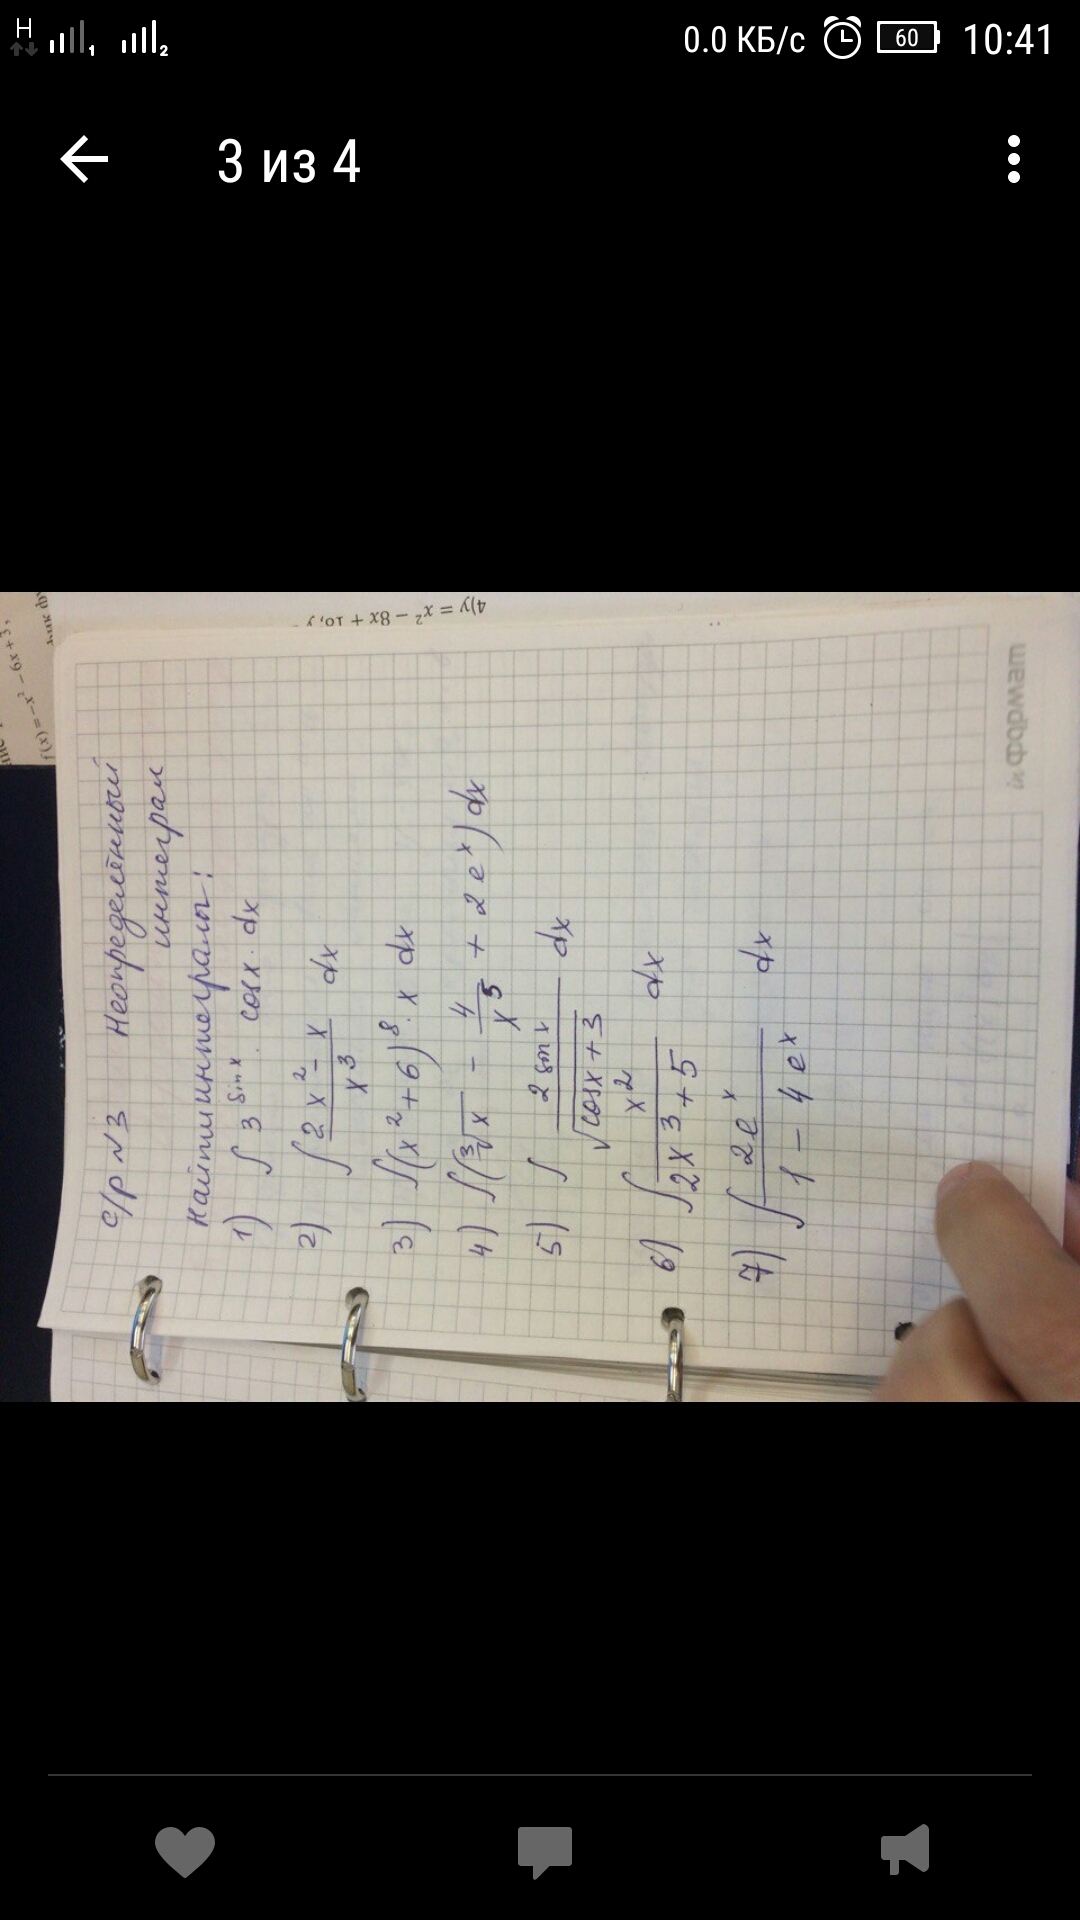 H 1 2 0.0 КБ/с 60 10:41
3 из 4
4) y = x² − 8x + 10, y
f(x) = −x² − 6x + 3,
с/р №3 Неопределённый
интеграл
Найти интегралы:
1) ∫ 3^(sin x) · cos x · dx
2) ∫ (2x² − x)/x³ dx
3) ∫ (x² + 6)⁸ · x dx
4) ∫ (∛x − 4/x⁵ + 2e^x) dx
5) ∫ (2 sin x)/√(cos x + 3) dx
6) ∫ x²/(2x³ + 5) dx
7) ∫ (2e^x)/(1 − 4e^x) dx
in формат